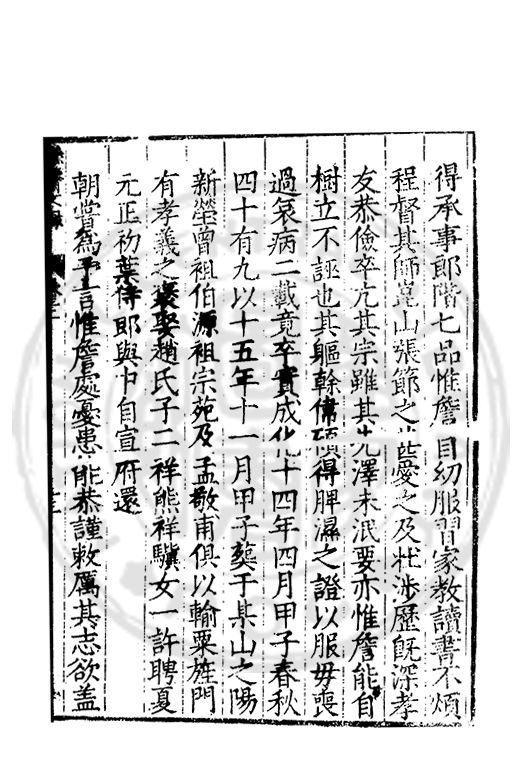 得承事郎階七品惟詹自幼服習家教讀書不煩
程督其師崑山張節之甚愛之及壯涉歷旣深孝
友恭儉卒亢其宗雖其先澤未泯要亦惟詹能自
樹立不誣也其軀幹偉碩得脾濕之證以服毋喪
過哀病二載竟卒實成化十四年四月甲子春秋
四十有九以十五年十一月甲子塟于某山之陽
新塋曾祖伯源祖宗苑及孟敬甫俱以輸粟旌門
有孝義之褒娶趙氏子二祥熊祥驥女一許聘夏
元正初葉侍郎與中自宣府還
朝嘗爲予言惟詹處憂患能恭謹敕厲其志欲盖